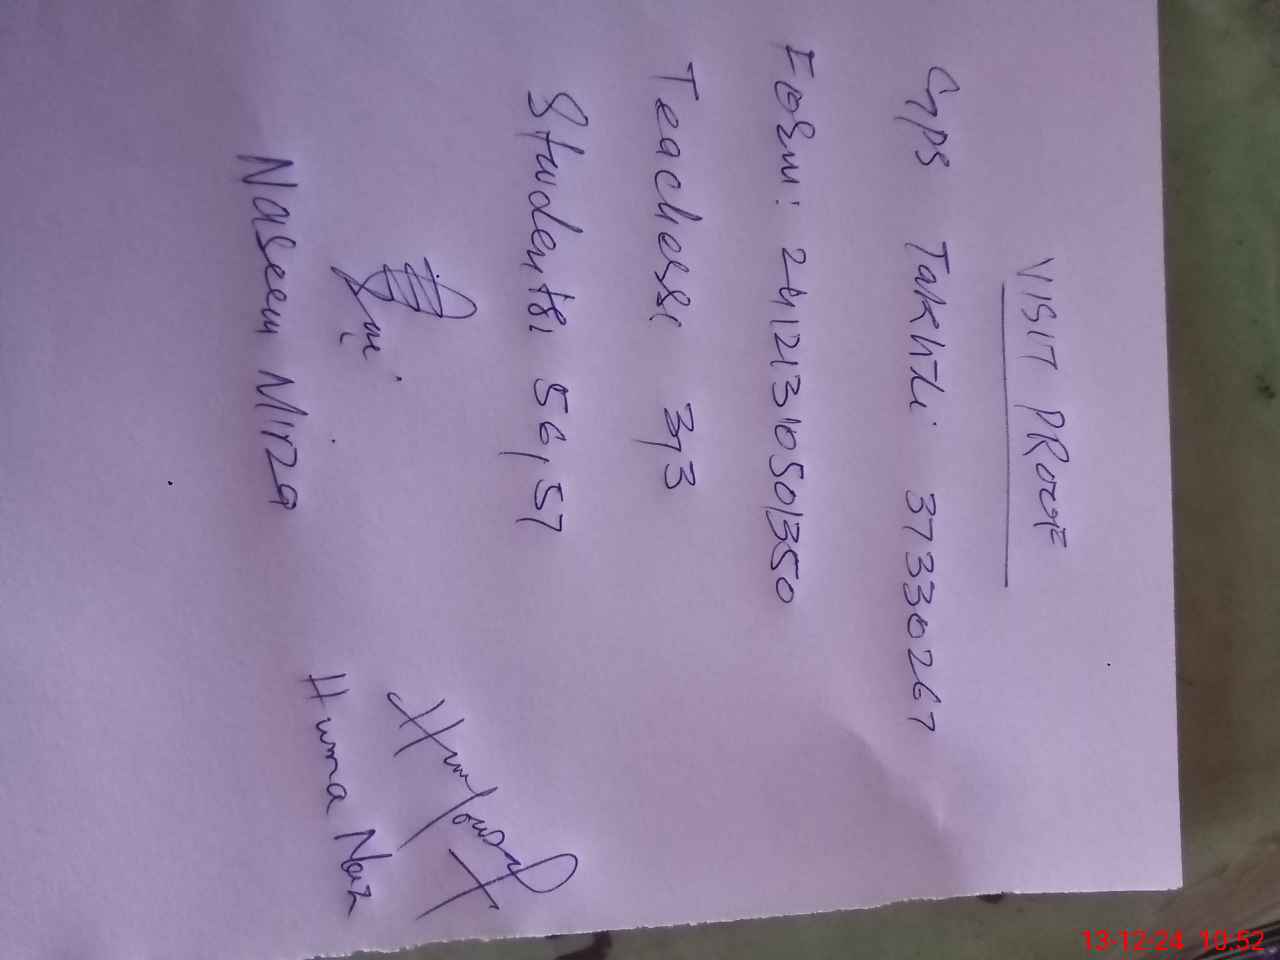 VISIT PROOF
GPS Takhti 37330267
Form: 24121310501350
Teachers: 3,3
Students: 56,57
Naseem Mirza
Huma Naz
13-12-24 10:52